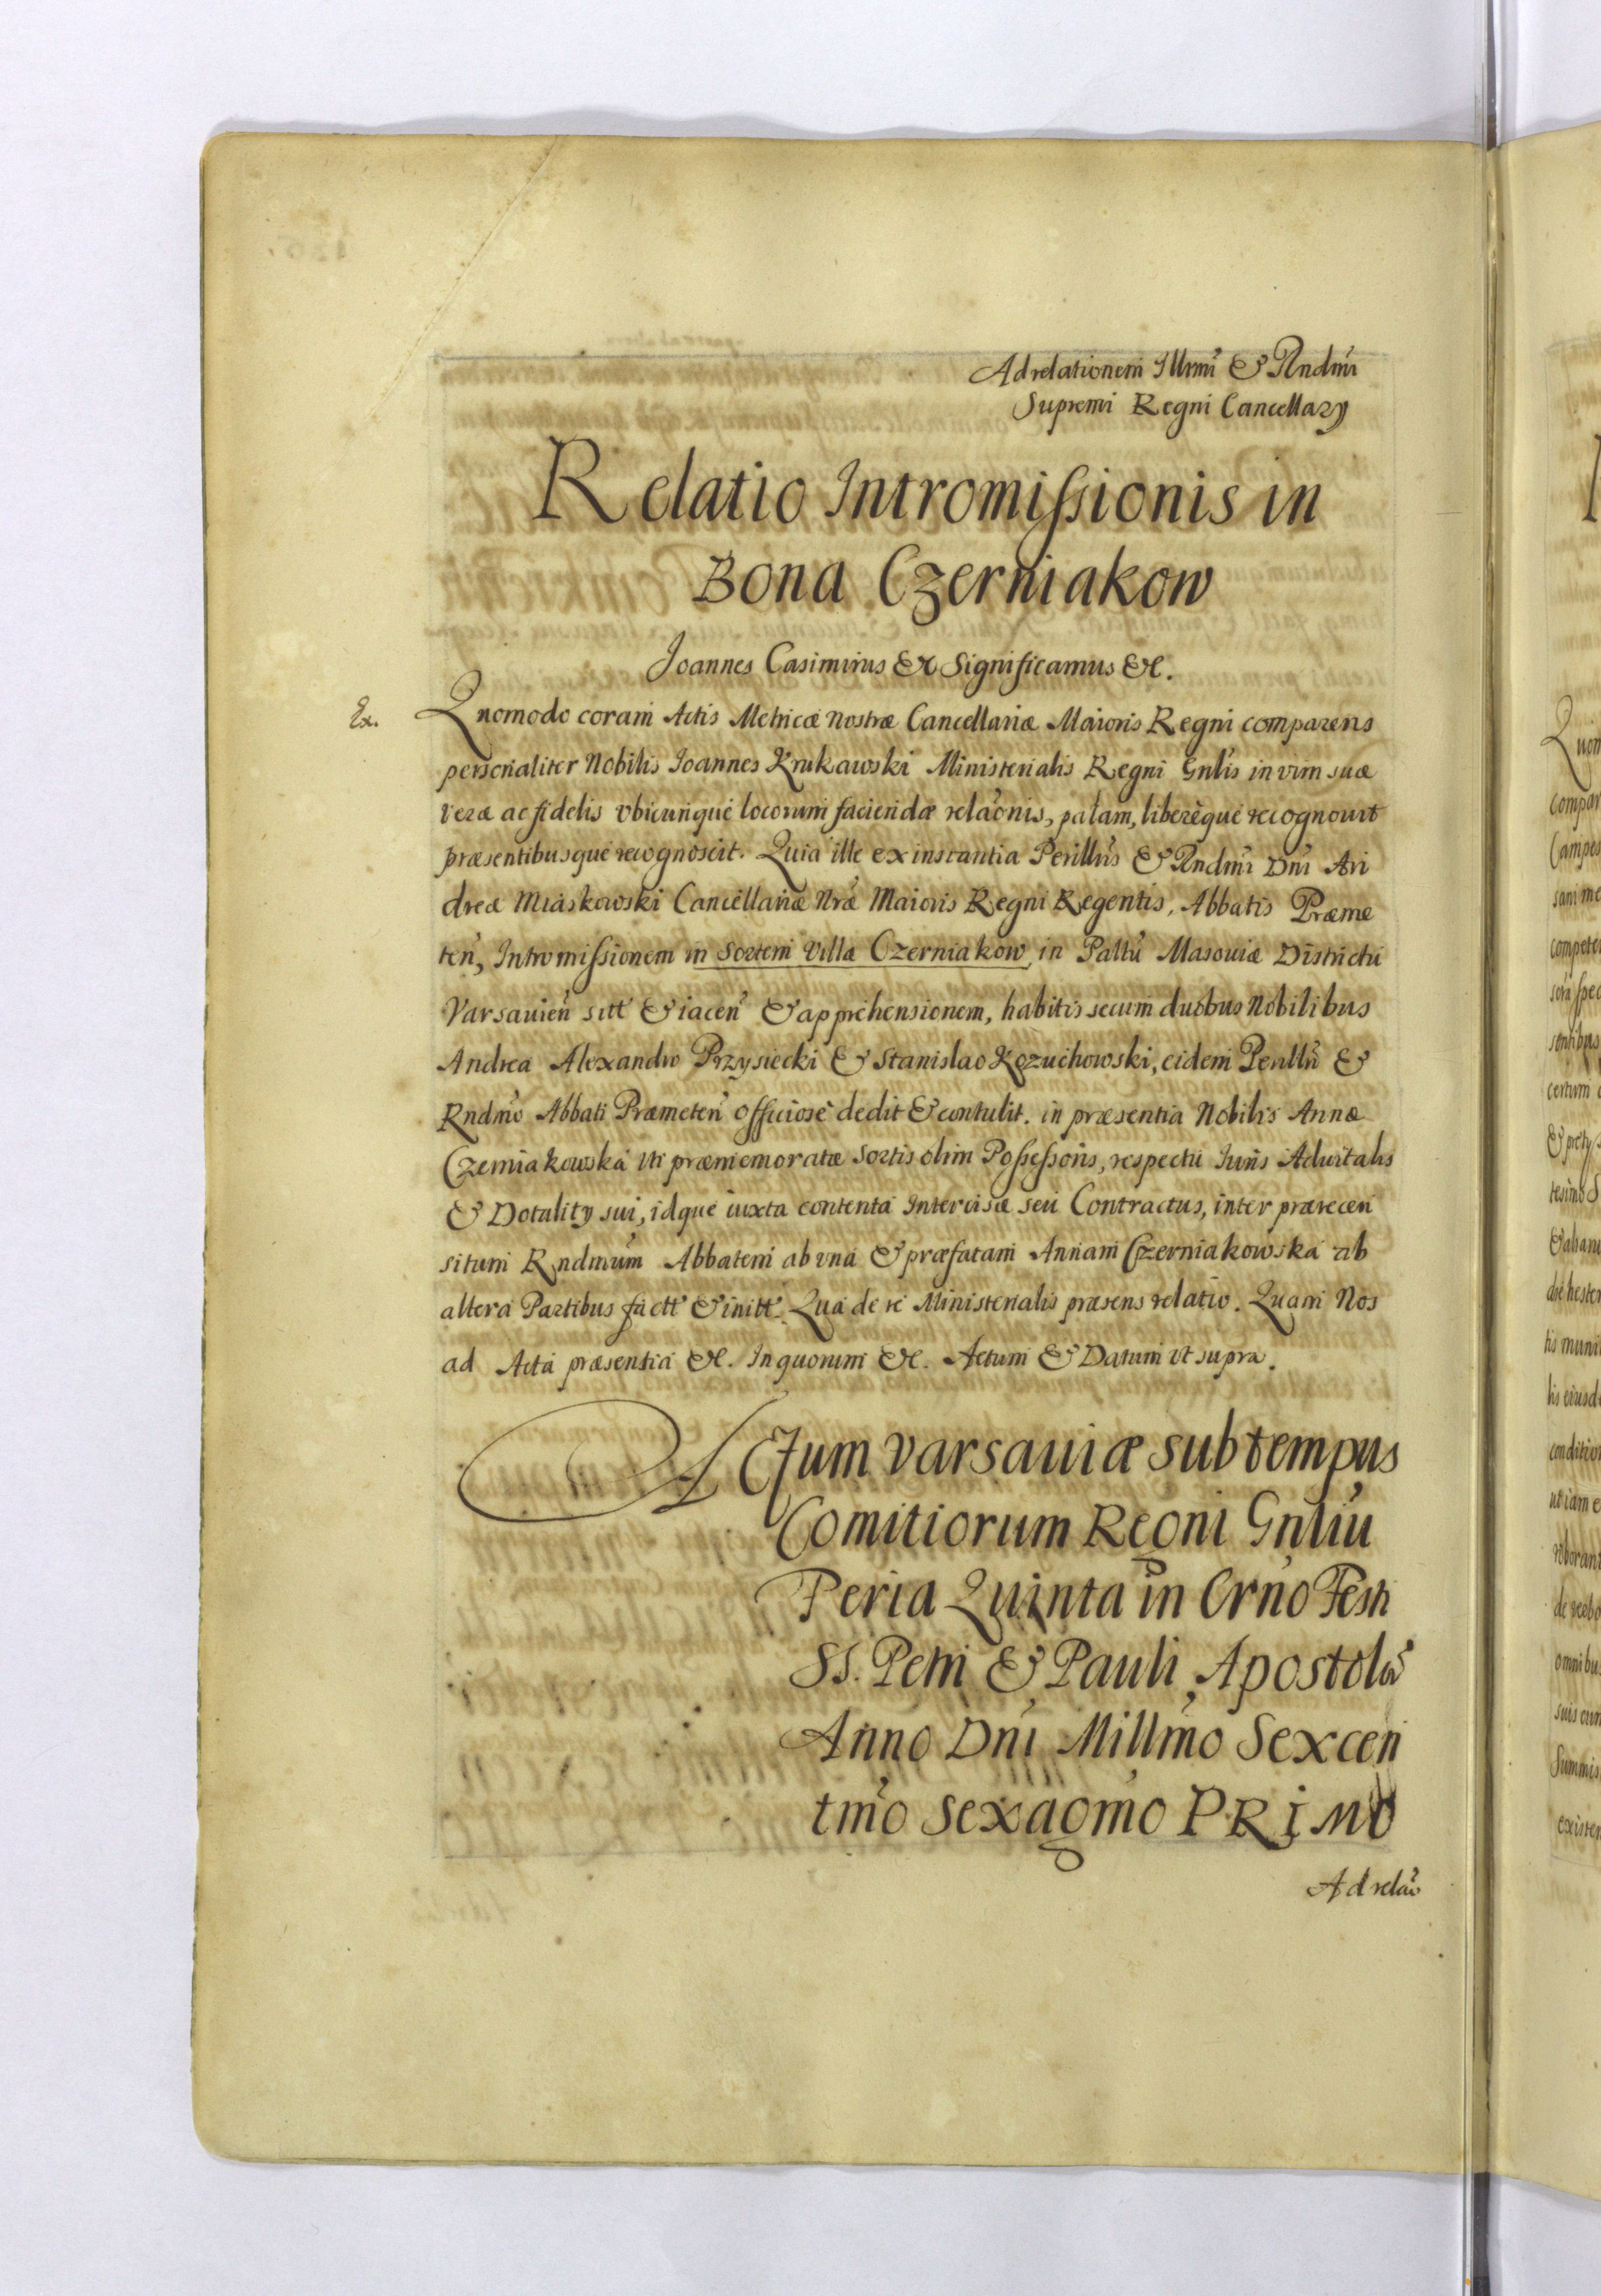 Ad relationem Illrmi & Rndmi
Supremi Regni Cancellary
Relatio Intromissionis in
Bona Czerniakow
Joannes Casimirus &c Significamus &c.
Ex. Quomodo coram Actis Metricæ nostræ Cancellariæ Maioris Regni comparens
personaliter Nobilis Joannes Krukawski Ministerialis Regni Gnlis in vim suæ
veræ ac fidelis vbicunque locorum faciendæ relaonis, palam, liberèque recognouit
præsentibusque recognoscit. Quia ille ex instantia Perillris & Rndmi Dni An
dreæ Miaskowski Cancellariæ Nræ Maioris Regni Regentis, Abbatis Præme
ten, Intromissionem in Sortem Villæ Czerniakow, in Palttu Masouiæ Districtu
Varsauien sitt & iacen & apprehensionem, habitis secum duobus Nobilibus
Andrea Alexandro Przysiecki & Stanislao Kozuchowski, eidem Perillri &
Rndmo Abbati Præmeten officiosè dedit & contulit. in præsentia Nobilis Annæ
Czerniakowska vti præmemoratæ Sortis olim Possessoris, respectu Iuris Aduitalis
& Dotality sui, idque iuxta contenta Intercisæ seu Contractus, inter prærecen
situm Rndmum Abbatem ab vna & præfatam Annam Czerniakowska ab
altera Partibus factt & initt. Qua de re Ministerialis præsens relatio. Quam Nos
ad Acta præsentia &c. In quorum &c. Actum & Datum vt supra.
Actum Varsauiæ sub tempus
Comitiorum Regni Gnliu
Feria Quinta in Crno Festi
SS. Petri & Pauli Apostolor
Anno Dni Millmo Sexcen
tmo Sexagmo PRIMO
Ad relao